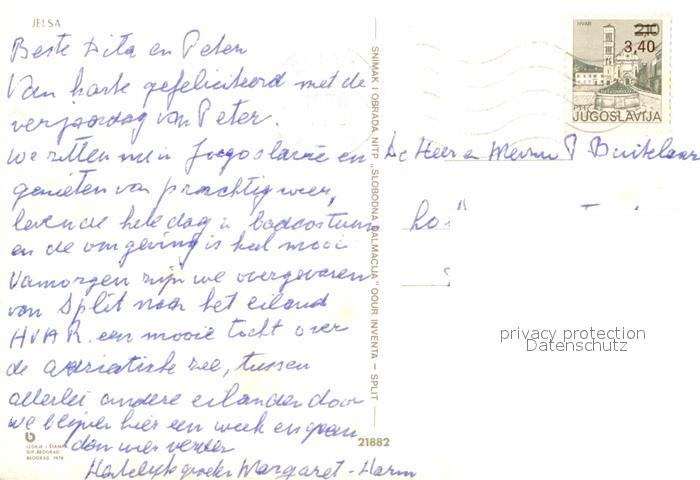 JELSA
Beste Dita en Peter
Van harte gefeliciteerd met de
verjaardag van Peter.
we zitten nu in Jugoslavië en
genieten van prachtig weer,
leven de hele dag in badcostuum
en de omgeving is heel mooi
Vanmorgen zijn we overgevaren
van Split naar het eiland
HVAR. een mooie tocht over
de adriatische zee, tussen
allerlei andere eilanden door
we blijven hier een week en gaan
dan weer verder
Hartelijke groeten Margaret - Harm
IZDAJE I ŠTAMPA
BIP „BEOGRAD"
BEOGRAD 1978
21882
SNIMAK I OBRADA NITP „SLOBODNA DALMACIJA" OOUR INVENTA – SPLIT
HVAR
2,10
3,40
PTT
JUGOSLAVIJA
De Heer en Mevrouw P Buitelaar
privacy protection
Datenschutz